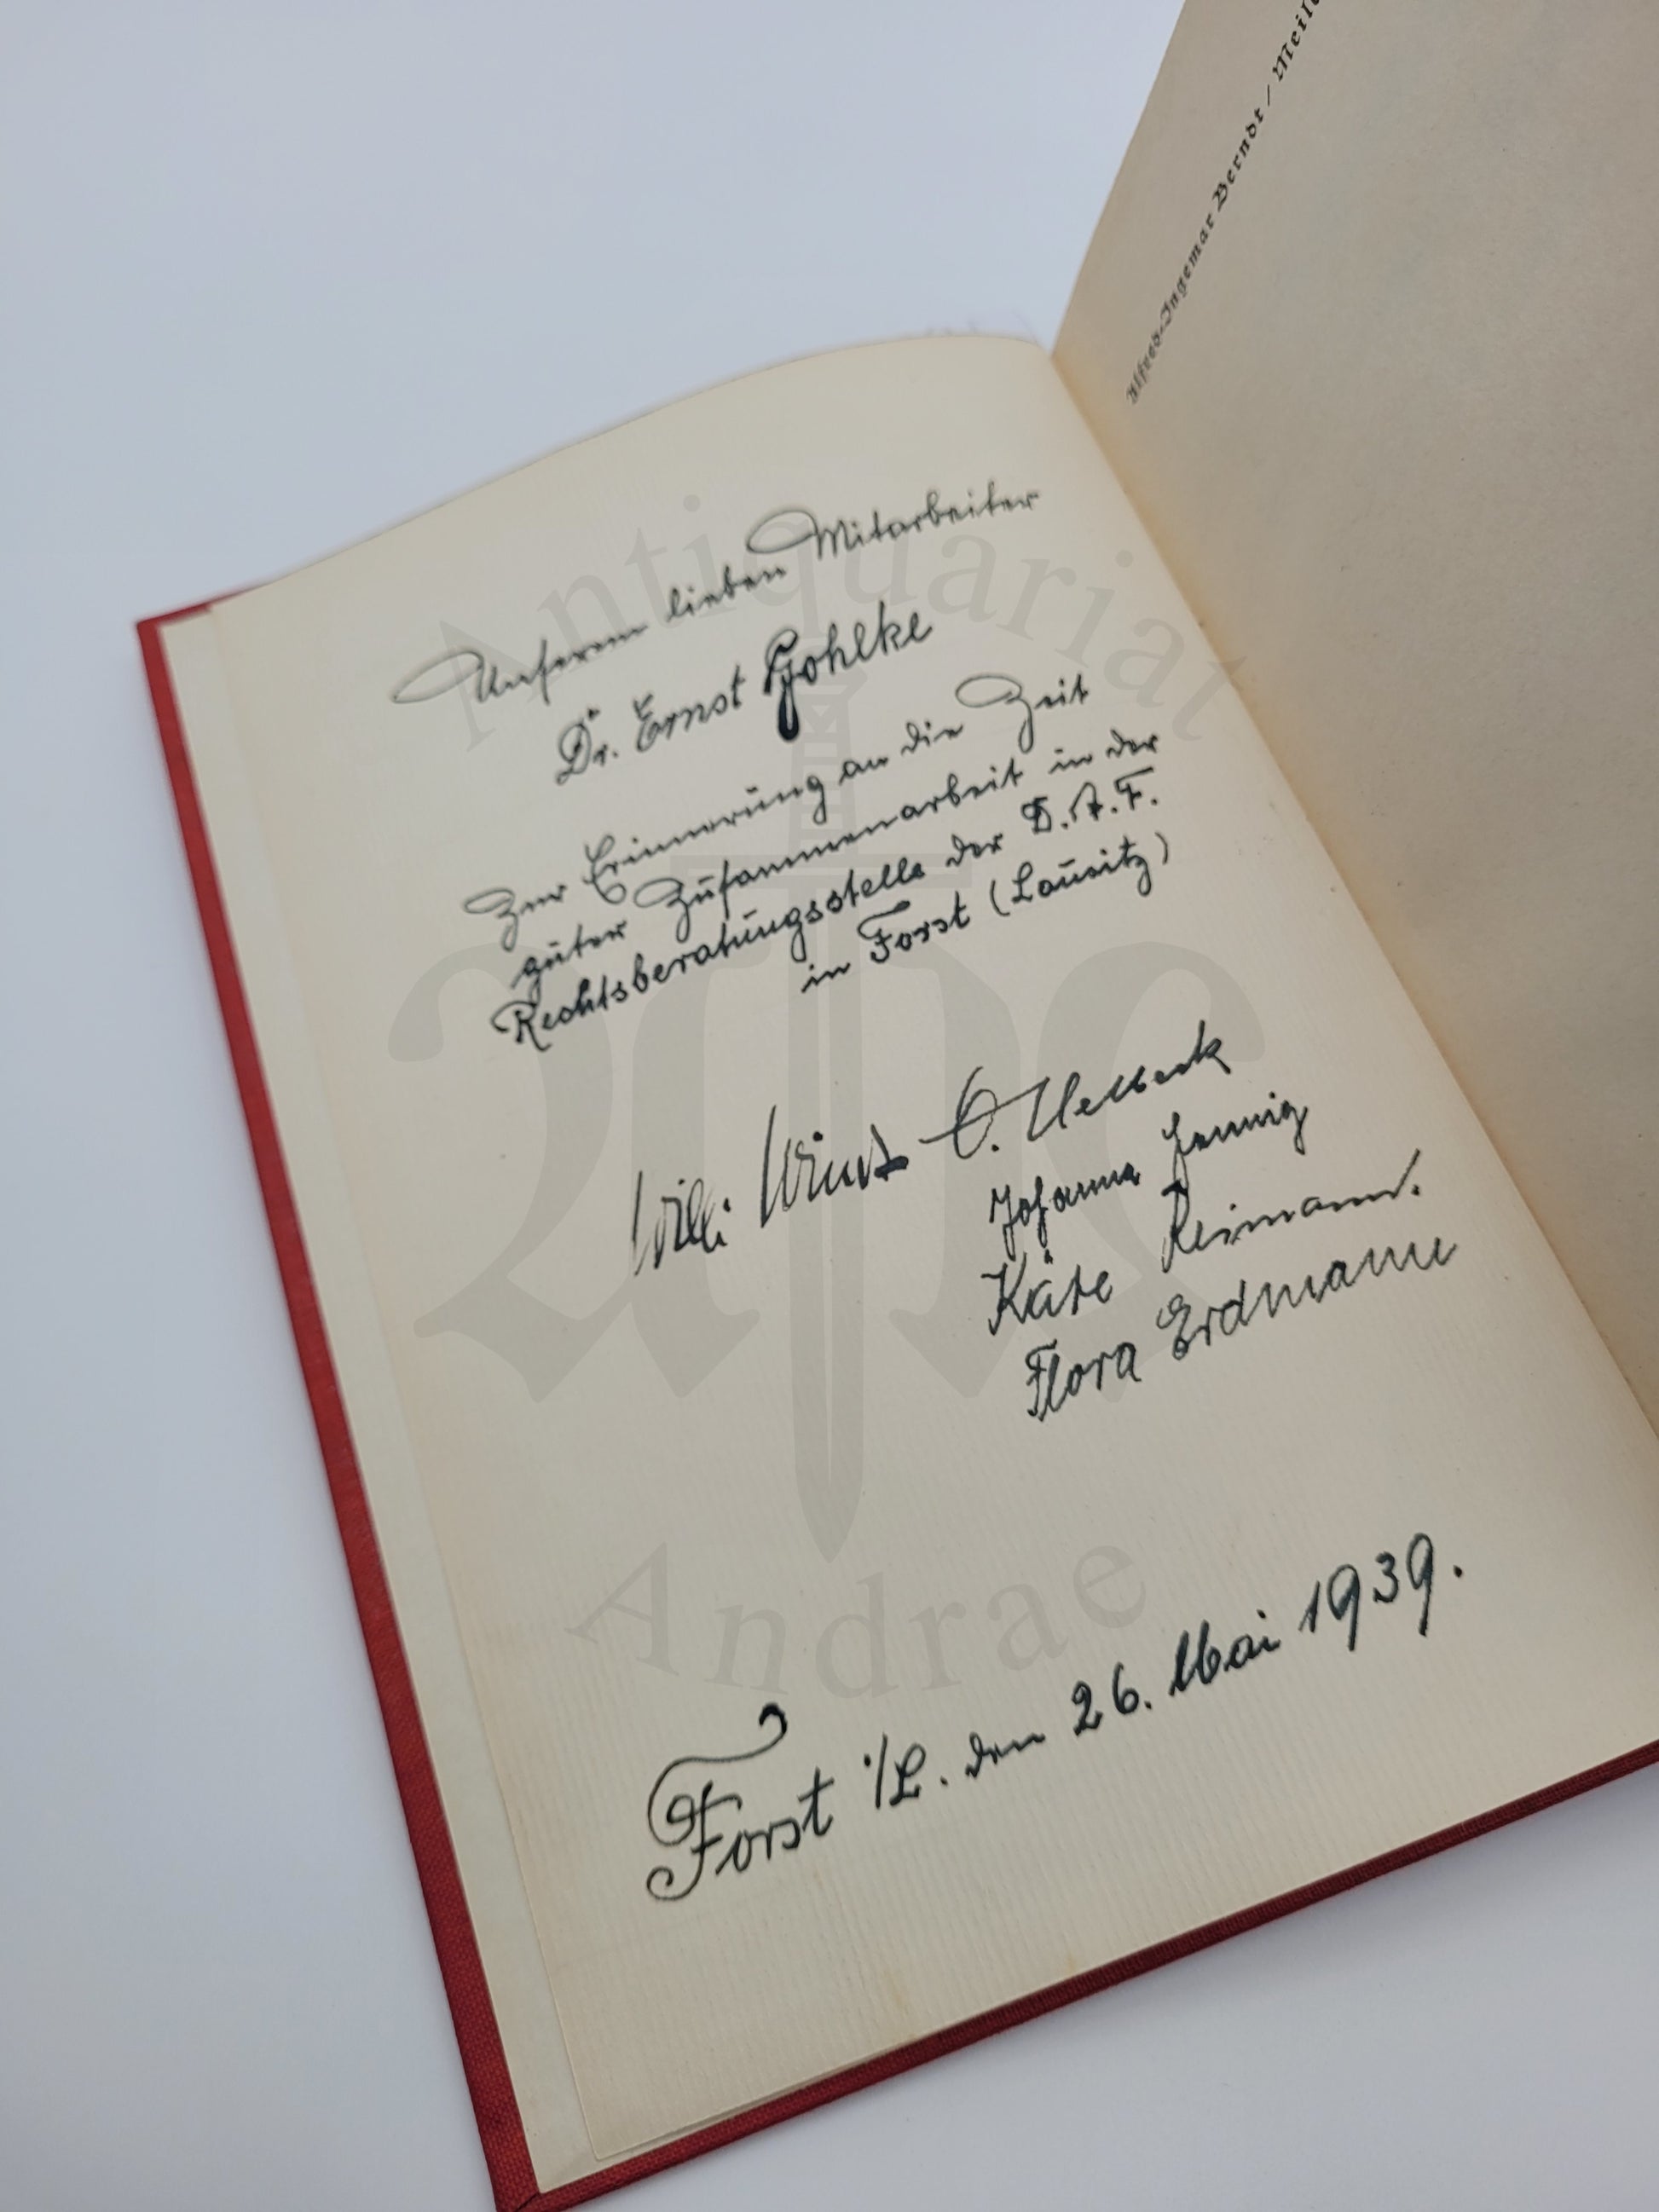 Unserem lieben Mitarbeiter
Dr. Ernst Gohlke
Zur Erinnerung an die Zeit
guter Zusammenarbeit in der
Rechtsberatungsstelle der D.A.F.
in Forst (Lausitz)
Willi
Johanna Hennig
Käte Reimann.
Flora Erdmann
Forst i/L. den 26. Mai 1939.
Alfred-Ingemar Berndt /
Antiquariat
Andrae